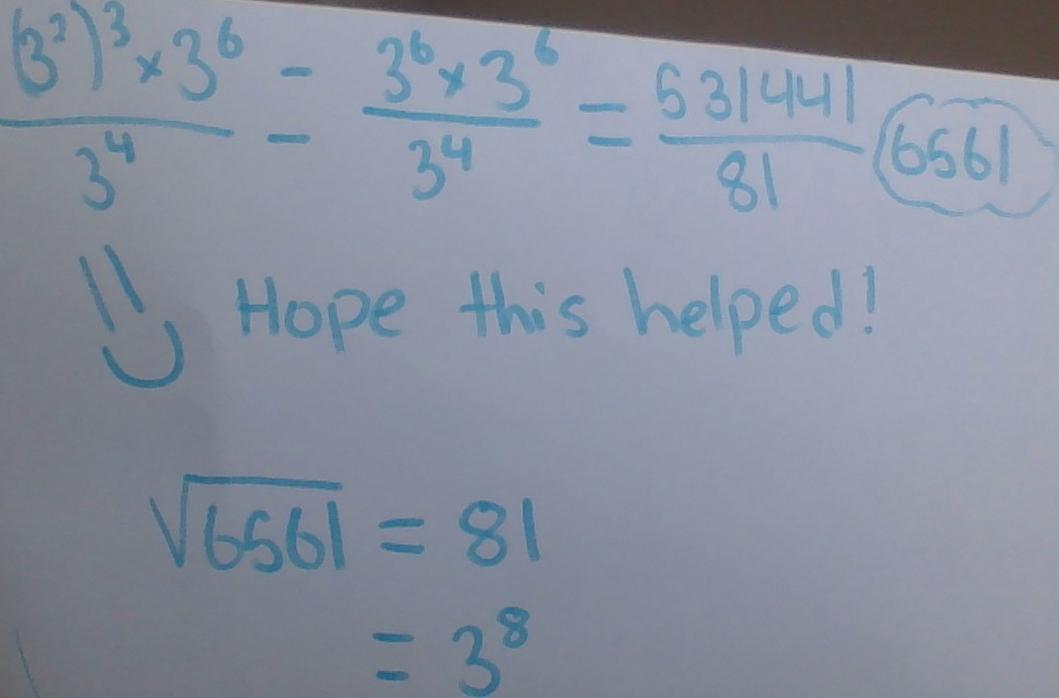 (3²)³ × 3⁶ / 3⁴ = 3⁶ × 3⁶ / 3⁴ = 531441 / 81 6561
Hope this helped!
√6561 = 81
= 3⁸